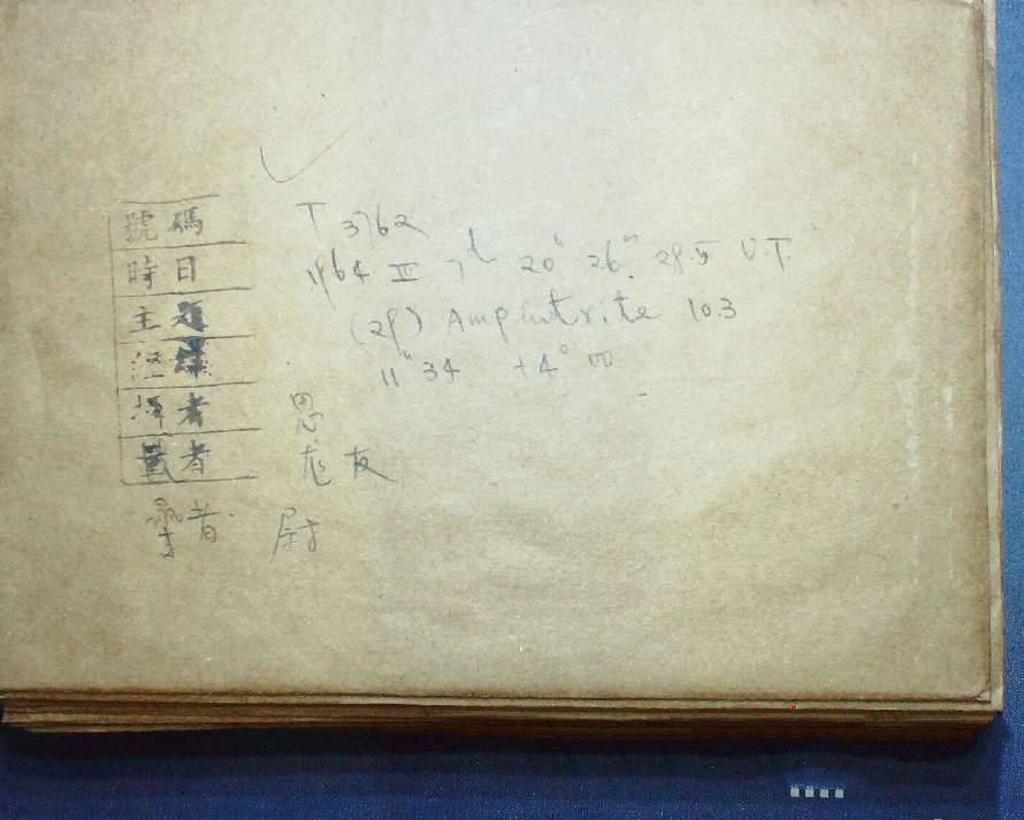 號碼 T 3762
時日 1964 III 7d 20h 26m 29.5 U.T.
主題 (29) Amphitrite 10.3
經緯 11h 34 +4°
擇者 恩
量者 彪 友
者 尉